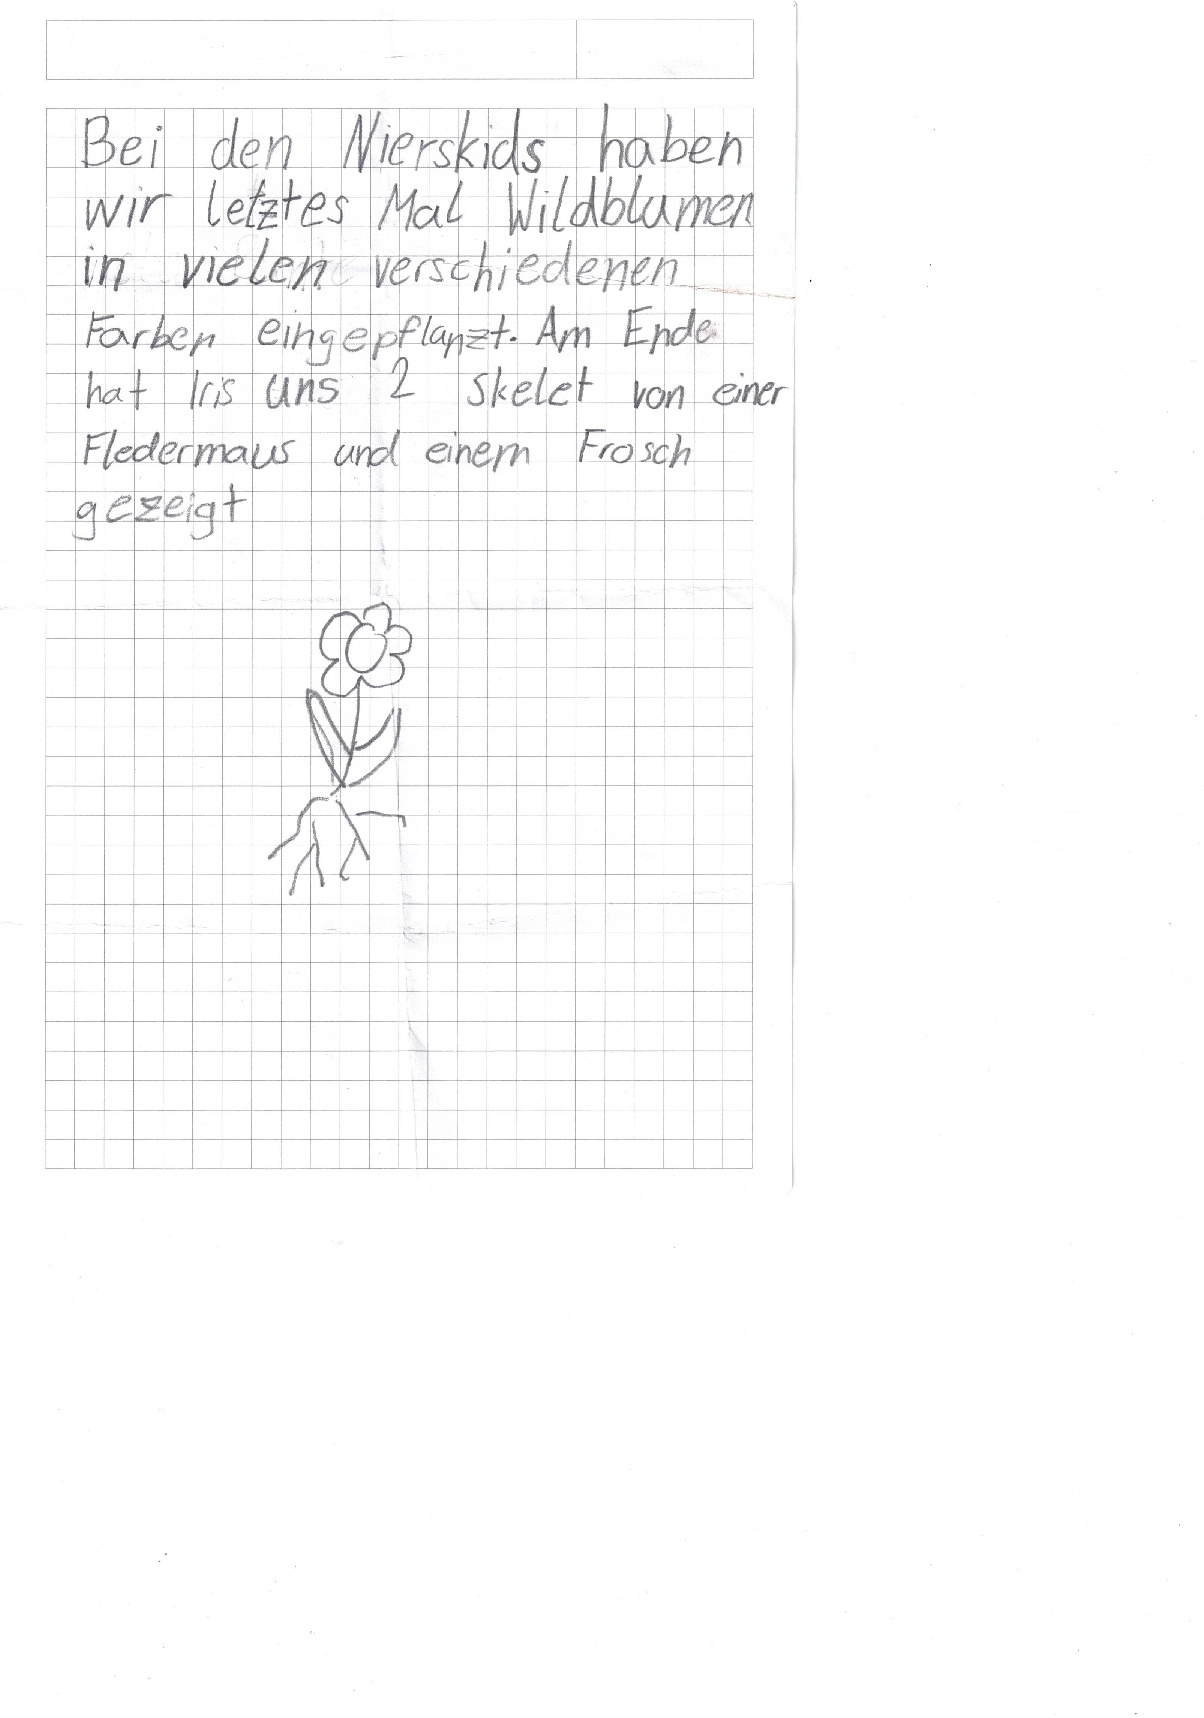 Bei den Nierskids haben
wir letztes Mal Wildblumen
in vielen verschiedenen
Farben eingepflanzt. Am Ende
hat Iris uns 2 Skelet von einer
Fledermaus und einem Frosch
gezeigt